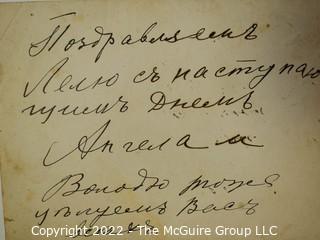 Поздравляемъ
Лелю съ наступаю
щимъ Днемъ
Ангела и
Володю тоже
цѣлуемъ Васъ
Copyright 2022 - The McGuire Group LLC